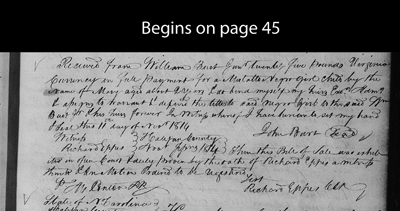 Begins on page 45
Received from William Hurt Junr Twenty five pounds Virginia
Currency in full payment for a Molatto Negro Girl Child by the
name of Mary aged about 2 years I do bind myself my heirs
& assigns to warrant & defend the title to said Negro Girl to the said Wm
Hurt his heirs forever In Witness whereof I have hereunto set my hand
& Seal this 11 day of Novr 1814
John Hart Seal
Halifax County
Richard Eppes 1814 Then this Bill of Sale was exhib
ited in open Court & duly proven by the oath of Richard Eppes a witness
thereto & on motion Ordered to be Registered
Richard Eppes Clk
State of No Carolina